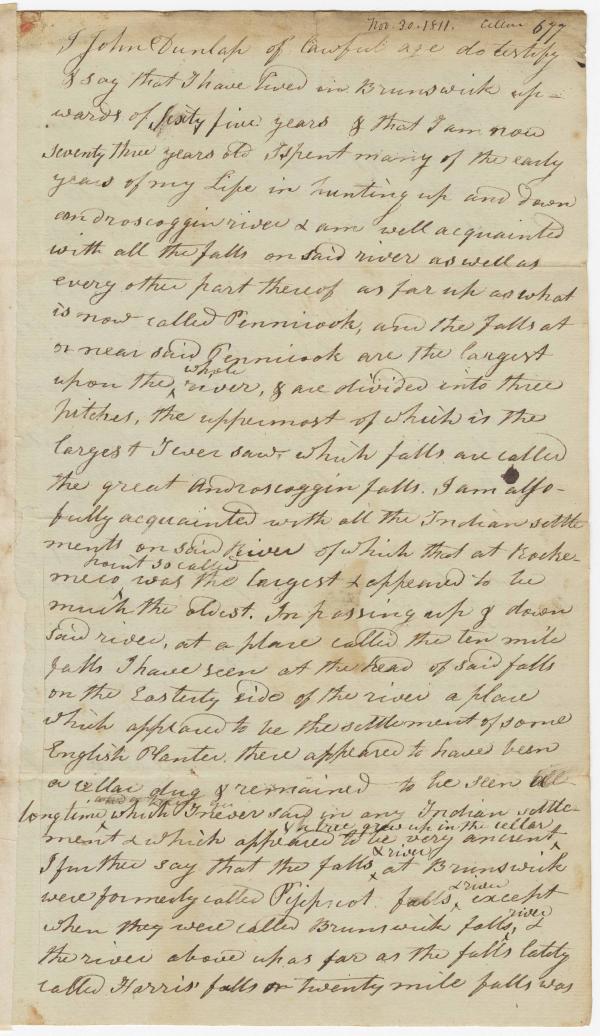 Nov. 30. 1811. Cellar 677
I John Dunlap of lawful age do testify
& say that I have lived in Brunswick up=
wards of sixty five years & that I am now
seventy three years old I spent many of the early
years of my Life in hunting up and down
androscoggin river & am well acquainted
with all the falls on said river as well as
every other part thereof as far up as what
is now called Pennicook, and the falls at
or near said Pennicook are the largest
whole
upon the ‸ river, & are divided into three
pitches, the uppermost of which is the
largest I ever saw which falls are called
the great Androscoggin falls. I am also
fully acquainted with all the Indian settle
ments on said River of which that at Rocke-
point so called
meco ‸ was the largest & appeared to be
much the oldest. In passing up & down
said river, at a place called the ten mile
falls I have seen at the head of said falls
on the Easterly side of the river a place
which appeared to be the settlement of some
English Planter. there appeared to have been
a cellar dug & remained to be seen
long time ‸ which I never said in any Indian settle-
& a tree grew up in the cellar
ment & which appeared to be very ancient ‸
& river
I further say that the falls ‸ at Brunswick
& river
were formerly called Pejipscot falls ‸ except
river
when they were called Brunswick falls, ‸ &
the river above up as far as the falls lately
called Harris falls or twenty mile falls was